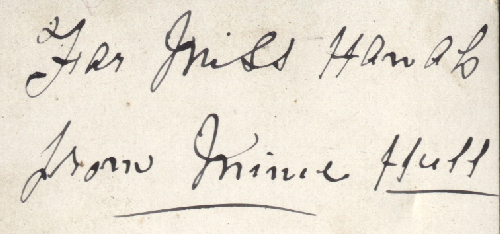 For Miss Hanah
from Minnie Hull